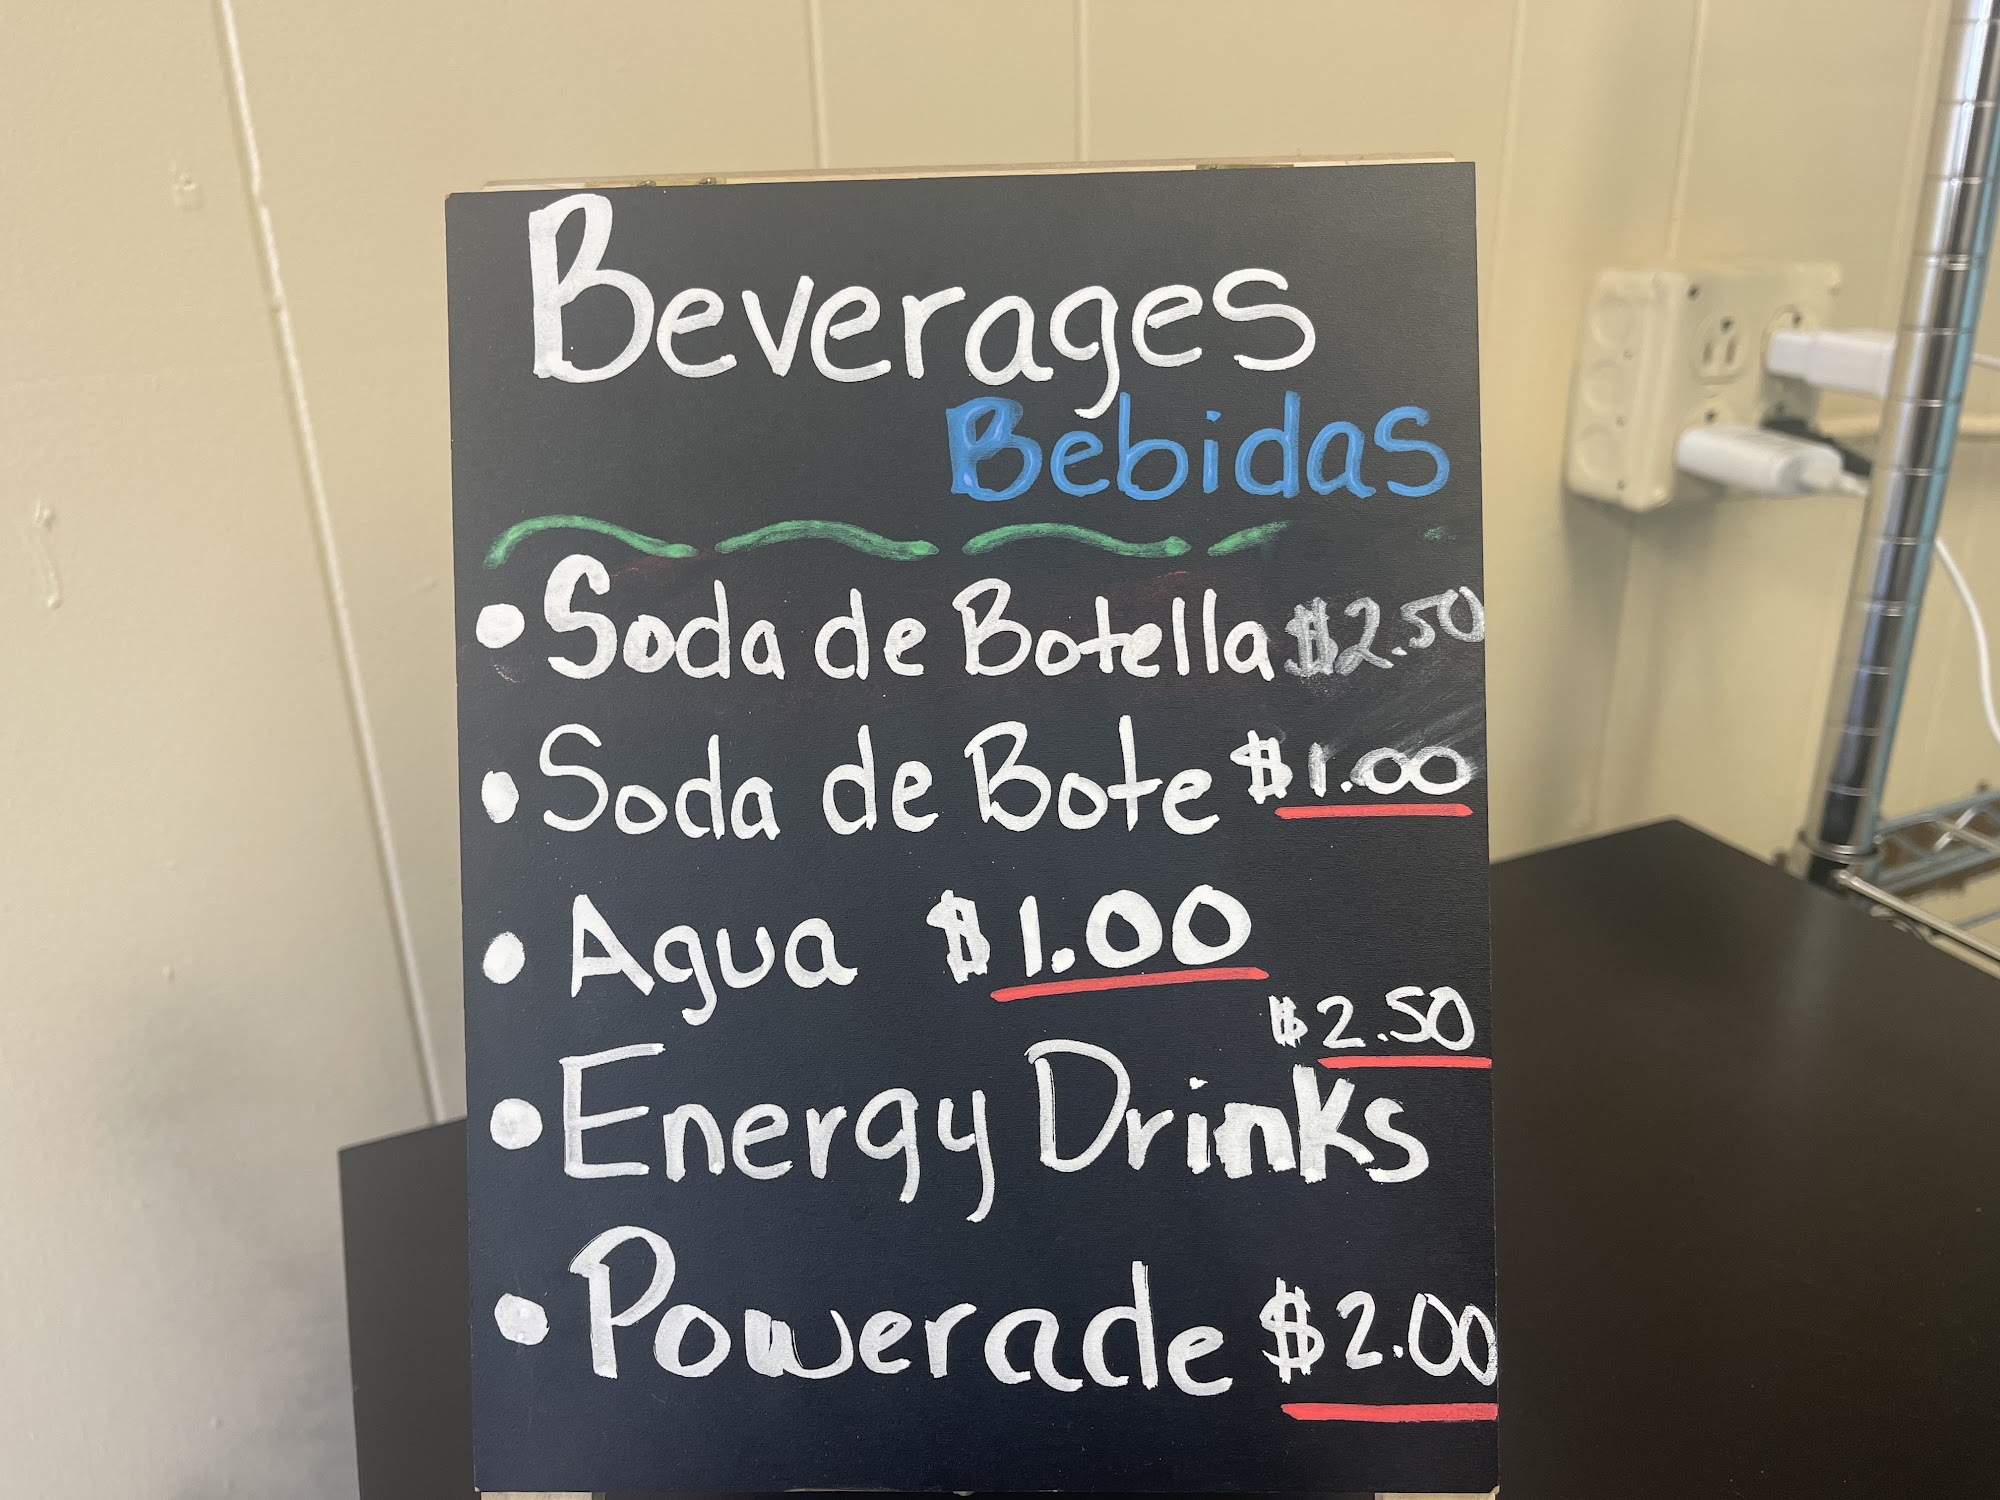 Beverages
Bebidas
• Soda de Botella $2.50
• Soda de Bote $1.00
• Agua $1.00
$2.50
• Energy Drinks
• Powerade $2.00